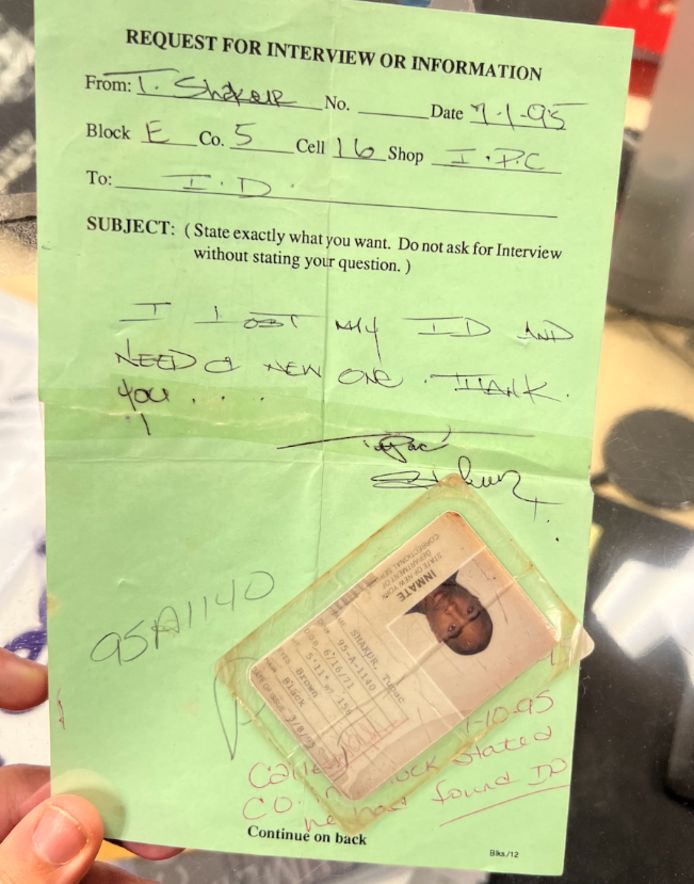 REQUEST FOR INTERVIEW OR INFORMATION
From: T. Shakur No. Date 7-1-95
Block E Co. 5 Cell 16 Shop I.P.C
To: I.D.
SUBJECT: (State exactly what you want. Do not ask for Interview
without stating your question.)
I LOST MY ID AND
NEED A NEW ONE. THANK
you....
Tupac
Shakur
95A1140
STATE OF NEW YORK
DEPARTMENT OF
CORRECTIONAL
INMATE
SHAKUR, Tupac
95-A-1140
DOB 6/16/71
5'11"
EYES Brown
HAIR Black
DATE OF ISSUE 3/8/95
7-10-95
Called Block Stated
CO. in he had found ID
Continue on back
Blks./12